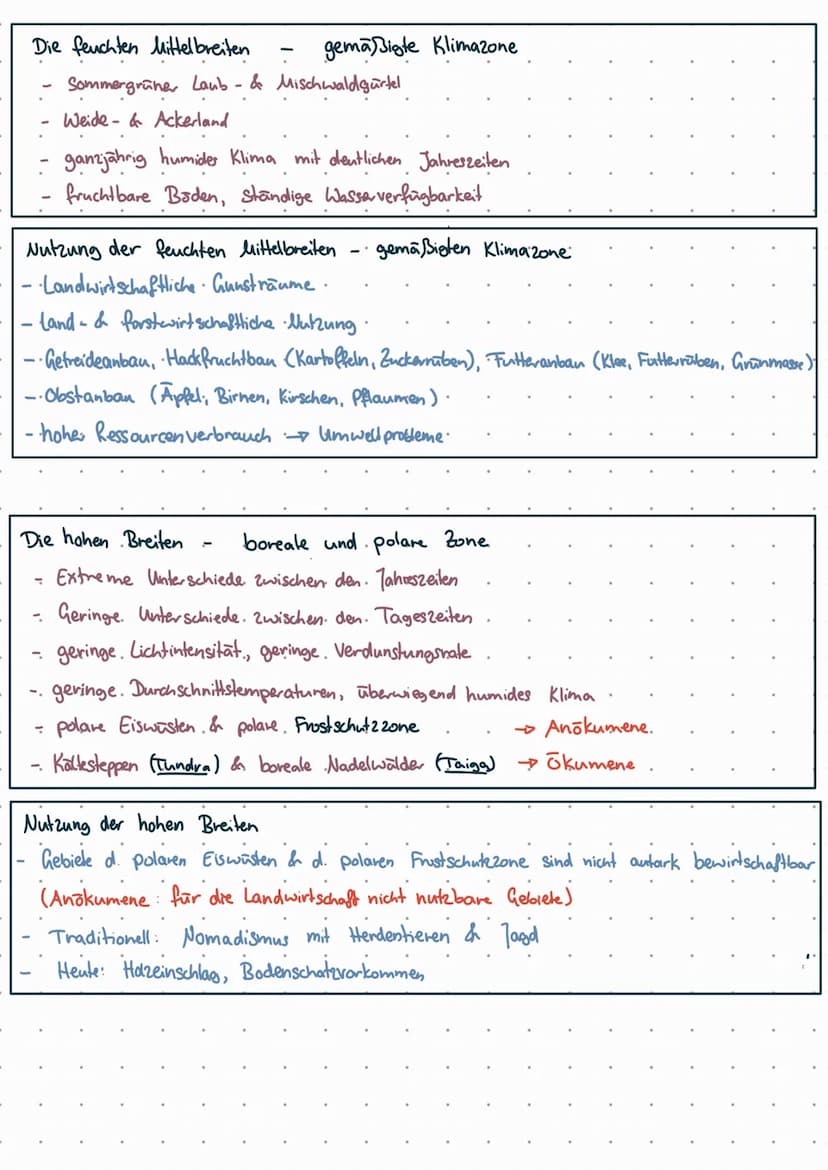 Die feuchten Mittelbreiten – gemäßigte Klimazone
- Sommergrüner Laub- & Mischwaldgürtel
- Weide- & Ackerland
- ganzjährig humides Klima mit deutlichen Jahreszeiten
- fruchtbare Böden, ständige Wasserverfügbarkeit
Nutzung der feuchten Mittelbreiten – gemäßigten Klimazone
- Landwirtschaftliche Gunsträume
- Land- & forstwirtschaftliche Nutzung
- Getreideanbau, Hackfruchtbau (Kartoffeln, Zuckerrüben), Futteranbau (Klee, Futterrüben, Grünmasse)
- Obstanbau (Äpfel, Birnen, Kirschen, Pflaumen)
- hoher Ressourcenverbrauch → Umweltprobleme
Die hohen Breiten – boreale und polare Zone
- Extreme Unterschiede zwischen den Jahreszeiten
- Geringe Unterschiede zwischen den Tageszeiten
- geringe Lichtintensität, geringe Verdunstungsrate
- geringe Durchschnittstemperaturen, überwiegend humides Klima
- polare Eiswüsten & polare Frostschutzzone → Anökumene
- Kältesteppen (Tundra) & boreale Nadelwälder (Taiga) → Ökumene
Nutzung der hohen Breiten
- Gebiete d. polaren Eiswüsten & d. polaren Frostschutzzone sind nicht autark bewirtschaftbar
(Anökumene: für die Landwirtschaft nicht nutzbare Gebiete)
- Traditionell: Nomadismus mit Herdentieren & Jagd
- Heute: Holzeinschlag, Bodenschatzvorkommen